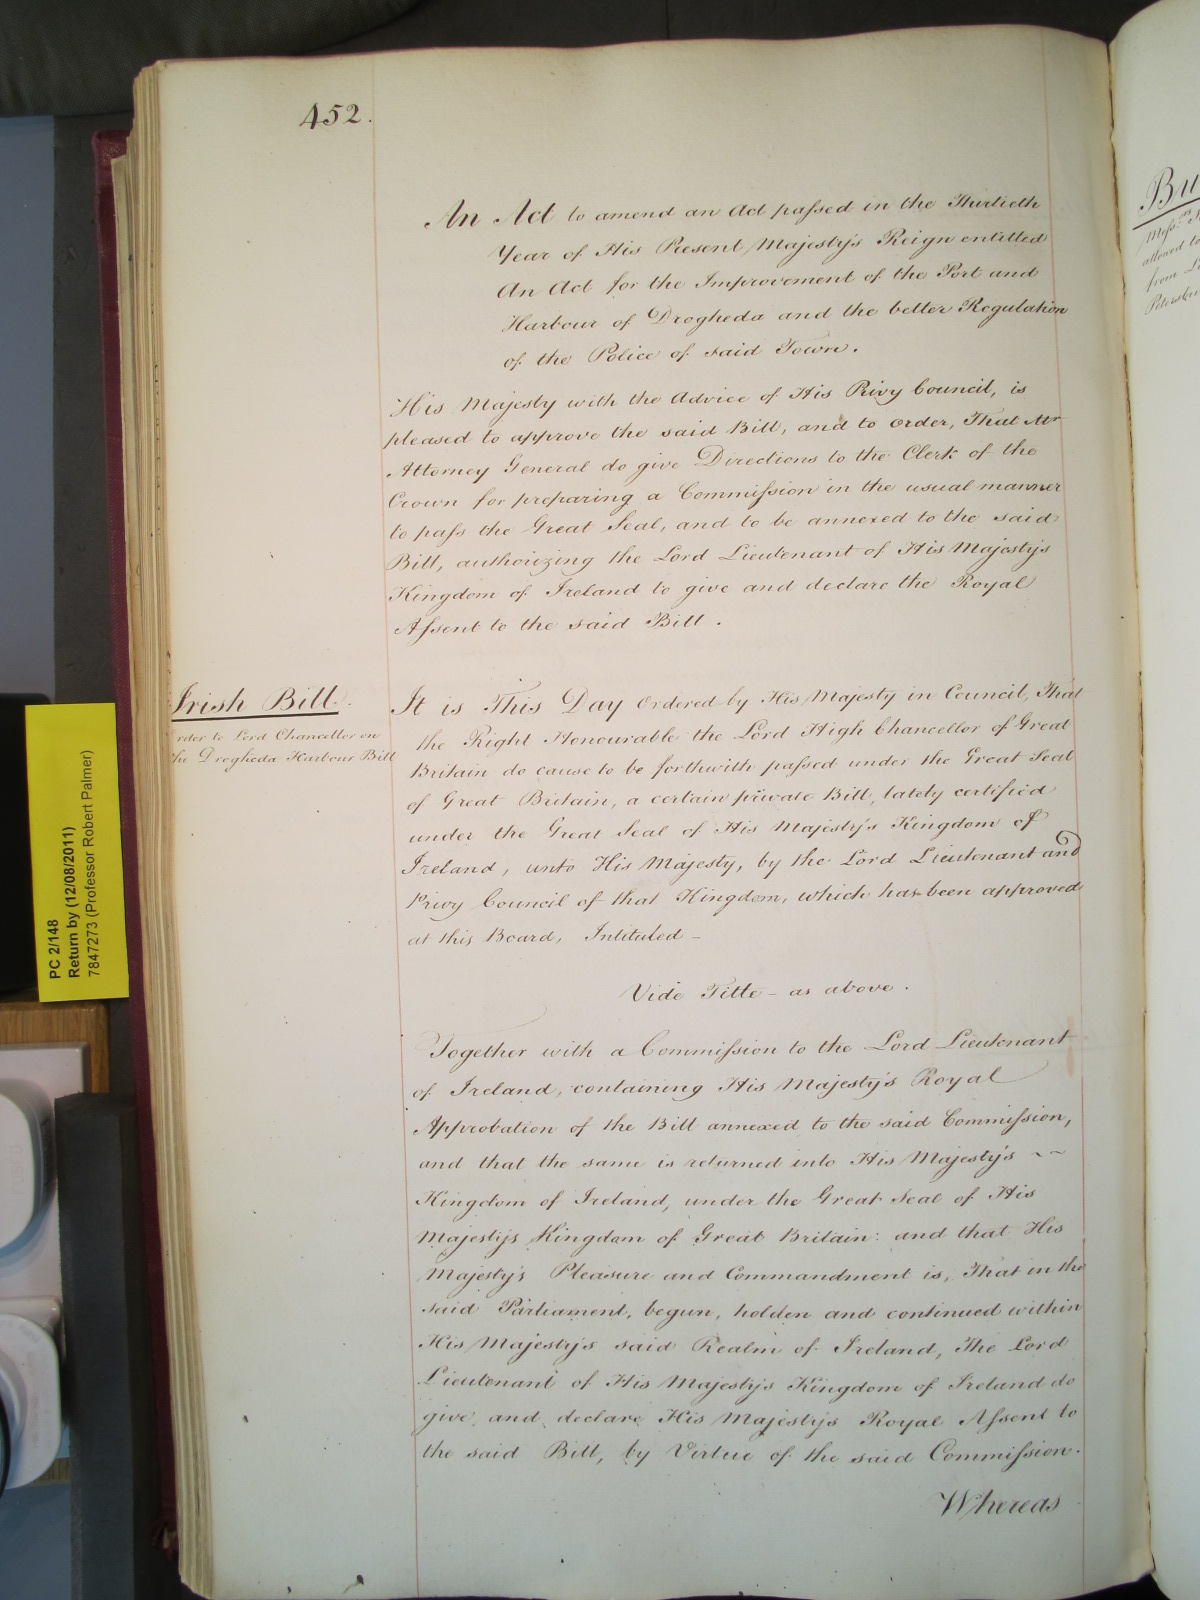 452.
An Act to amend an Act passed in the Thirtieth
Year of His Present Majesty's Reign entitled
An Act for the Improvement of the Port and
Harbour of Drogheda and the better Regulation
of the Police of said Town.
His Majesty with the Advice of His Privy Council, is
pleased to approve the said Bill, and to order, That Mr
Attorney General do give Directions to the Clerk of the
Crown for preparing a Commission in the usual manner
to pass the Great Seal, and to be annexed to the said
Bill, authorizing the Lord Lieutenant of His Majesty's
Kingdom of Ireland to give and declare the Royal
Assent to the said Bill.
Irish Bill.
rder to Lord Chancellor on
he Drogheda Harbour Bill
It is This Day Ordered by His Majesty in Council, That
the Right Honourable the Lord High Chancellor of Great
Britain do cause to be forthwith passed under the Great Seal
of Great Britain, a certain private Bill, lately certified
under the Great Seal of His Majesty's Kingdom of
Ireland, unto His Majesty, by the Lord Lieutenant and
Privy Council of that Kingdom, which has been approved
at this Board, Intituled -
Vide Title - as above.
Together with a Commission to the Lord Lieutenant
of Ireland, containing His Majesty's Royal
Approbation of the Bill annexed to the said Commission,
and that the same is returned into His Majesty's
Kingdom of Ireland, under the Great Seal of His
Majesty's Kingdom of Great Britain: and that His
Majesty's Pleasure and Commandment is, That in the
said Parliament, begun, holden and continued within
His Majesty's said Realm of Ireland, The Lord
Lieutenant of His Majesty's Kingdom of Ireland do
give and declare His Majesty's Royal Assent to
the said Bill, by Virtue of the said Commission.
Whereas
PC 2/148
Return by (12/08/2011)
7847273 (Professor Robert Palmer)
Bu
allowed to
from